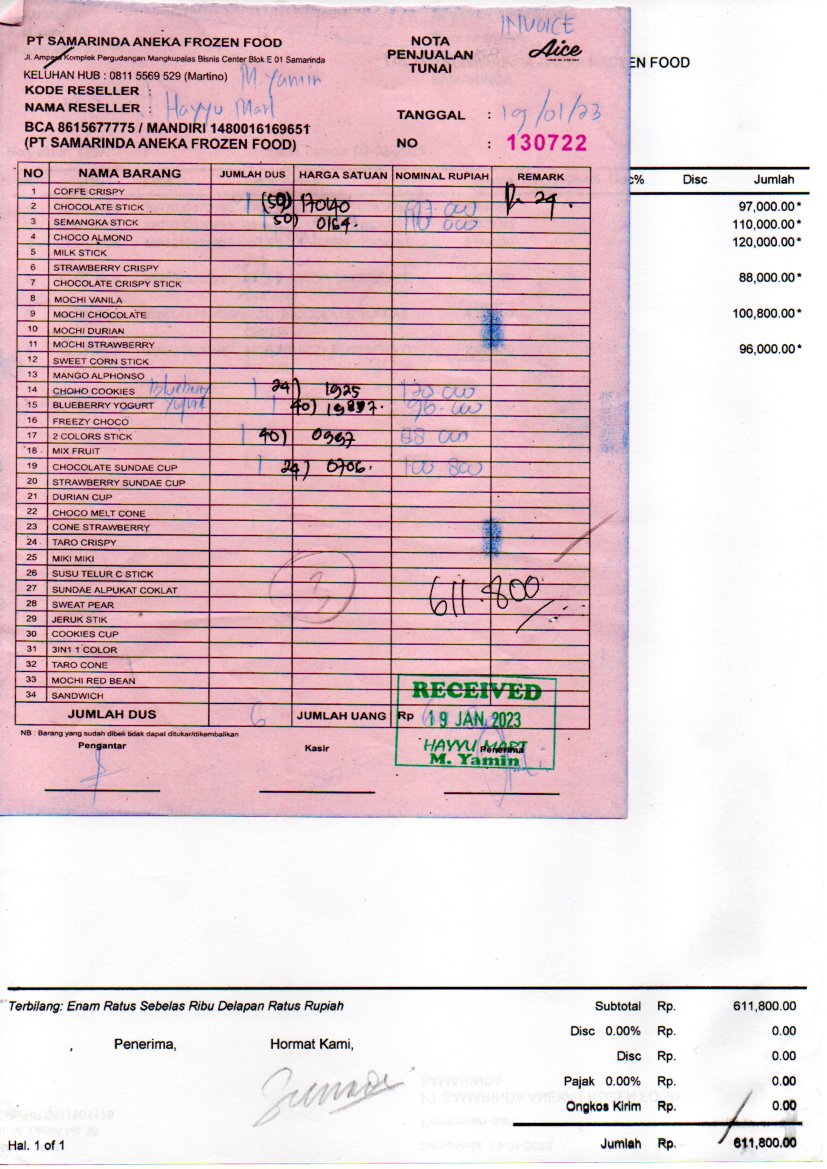 INVOICE
PT SAMARINDA ANEKA FROZEN FOOD
NOTA
PENJUALAN
TUNAI
Aice
EN FOOD
Jl. Ampera Komplek Pergudangan Mangkupalas Bisnis Center Blok E 01 Samarinda
KELUHAN HUB : 0811 5569 529 (Martino)
M. Yamin
KODE RESELLER :
NAMA RESELLER : Hayyu Mart
TANGGAL : 19/01/23
BCA 8615677775 / MANDIRI 1480016169651
(PT SAMARINDA ANEKA FROZEN FOOD)
NO : 130722
NO NAMA BARANG JUMLAH DUS HARGA SATUAN NOMINAL RUPIAH REMARK
c% Disc Jumlah
1 COFFE CRISPY
2 CHOCOLATE STICK 1 (50) 170140 97.000 97,000.00*
3 SEMANGKA STICK 1 50) 0164. 110 000 110,000.00*
4 CHOCO ALMOND 120,000.00*
5 MILK STICK
6 STRAWBERRY CRISPY 88,000.00*
7 CHOCOLATE CRISPY STICK
8 MOCHI VANILA
9 MOCHI CHOCOLATE 100,800.00*
10 MOCHI DURIAN
11 MOCHI STRAWBERRY 96,000.00*
12 SWEET CORN STICK
13 MANGO ALPHONSO
14 CHOHO COOKIES Blueberry 1 24) 1925 120 000
15 BLUEBERRY YOGURT Yogurt 1 40) 19897. 96.000
16 FREEZY CHOCO
17 2 COLORS STICK 1 40) 0997 88 000
18 MIX FRUIT
19 CHOCOLATE SUNDAE CUP 1 24) 0706. 100.800
20 STRAWBERRY SUNDAE CUP
21 DURIAN CUP
22 CHOCO MELT CONE
23 CONE STRAWBERRY
24 TARO CRISPY
25 MIKI MIKI
26 SUSU TELUR C STICK
27 SUNDAE ALPUKAT COKLAT
28 SWEAT PEAR 611.800
29 JERUK STIK
30 COOKIES CUP
31 3IN1 1 COLOR
32 TARO CONE
33 MOCHI RED BEAN
34 SANDWICH
RECEIVED
JUMLAH DUS 6 JUMLAH UANG Rp
19 JAN 2023
NB : Barang yang sudah dibeli tidak dapat ditukar/dikembalikan
Pengantar Kasir Penerima
HAYYU MART
M. Yamin
Terbilang: Enam Ratus Sebelas Ribu Delapan Ratus Rupiah
Subtotal Rp. 611,800.00
Disc 0.00% Rp. 0.00
Penerima, Hormat Kami,
Disc Rp. 0.00
Pajak 0.00% Rp. 0.00
Ongkos Kirim Rp. 0.00
Hal. 1 of 1
Jumlah Rp. 611,800.00